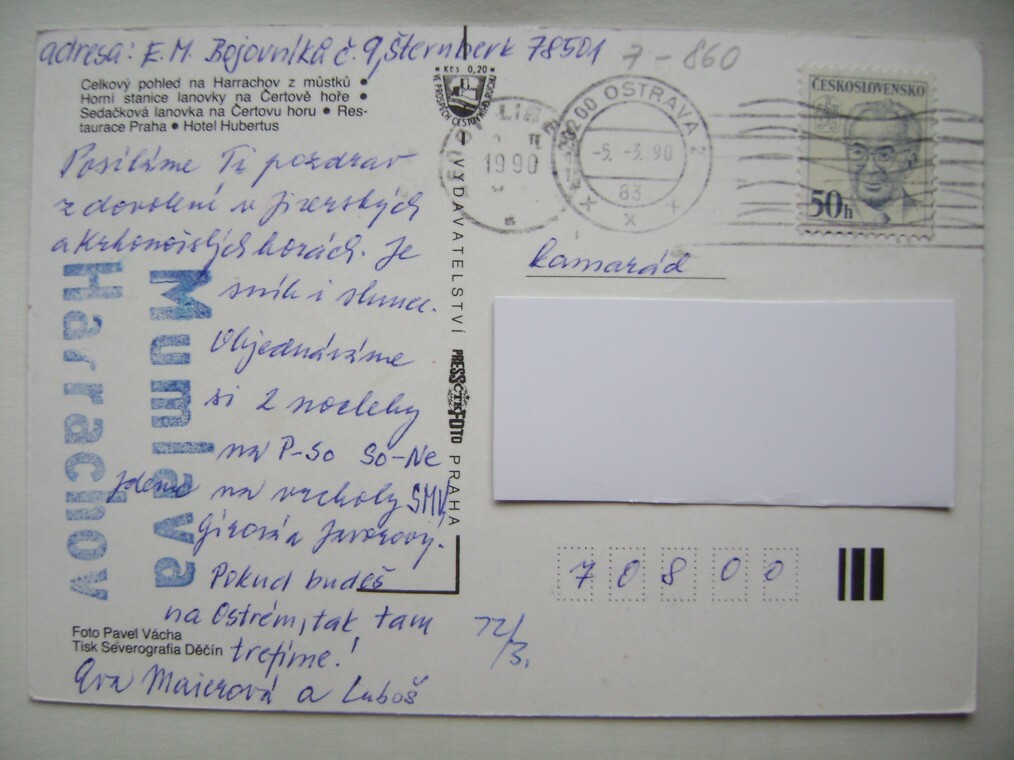 adresa: E.M. Bojovníků č. 9, Šternberk 78501
7-860
Celkový pohled na Harrachov z můstků •
Horní stanice lanovky na Čertově hoře •
Sedačková lanovka na Čertovu horu • Res-
taurace Praha • Hotel Hubertus
Kčs 0,20
VE PROSPĚCH CESTOVNÍHO RUCHU
1990
OSTRAVA 2
-5.-3.90
83
ČESKOSLOVENSKO
50h
Posíláme Ti pozdrav
z dovolení v Jizerských
a Krkonošských horách. Je
sníh i slunce.
Objednáváme
si 2 noclehy
na P-So So-Ne
Jdeme na vrcholy SMV,
Girová a Javorový.
Pokud budeš
na Ostrém, tak tam
trefíme!
Eva Maierová a Luboš
Mumlava
Harrachov
Foto Pavel Vácha
Tisk Severografia Děčín
VYDAVATELSTVÍ PRESSFOTO PRAHA
kamarád
70800
12/3.